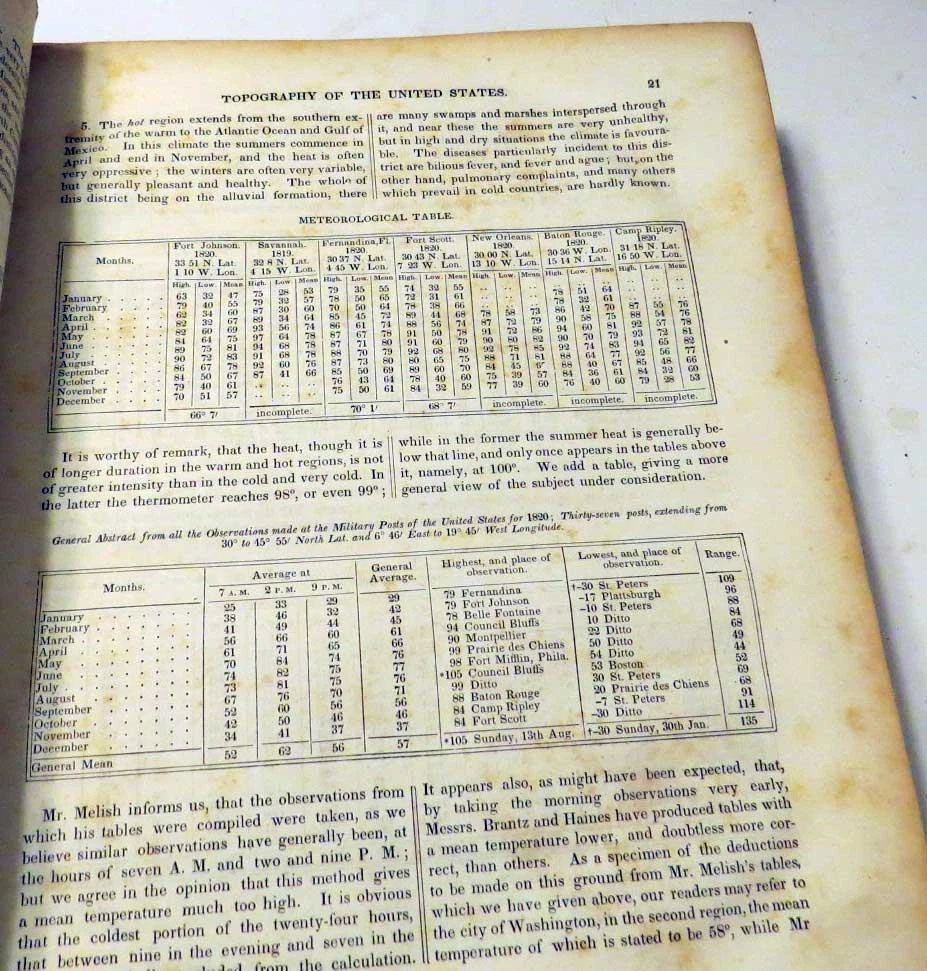 TOPOGRAPHY OF THE UNITED STATES. 21
5. The hot region extends from the southern ex-
tremity of the warm to the Atlantic Ocean and Gulf of
Mexico. In this climate the summers commence in
April and end in November, and the heat is often
very oppressive; the winters are often very variable,
but generally pleasant and healthy. The whole of
this district being on the alluvial formation, there
are many swamps and marshes interspersed through
it, and near these the summers are very unhealthy,
but in high and dry situations the climate is favoura-
ble. The diseases particularly incident to this dis-
trict are bilious fever, and fever and ague; but, on the
other hand, pulmonary complaints, and many others
which prevail in cold countries, are hardly known.
METEOROLOGICAL TABLE.
Months. Fort Johnson. Savannah. Fernandina, Fl. Fort Scott. New Orleans. Baton Rouge. Camp Ripley.
1820. 1819. 1820. 1820. 1820. 1820. 1820.
33 51 N. Lat. 32 8 N. Lat. 30 37 N. Lat. 30 43 N. Lat. 30 00 N. Lat. 30 36 W. Lon. 31 18 N. Lat.
1 10 W. Lon. 4 15 W. Lon. 4 45 W. Lon. 7 23 W. Lon. 13 10 W. Lon. 15 14 N. Lat. 16 50 W. Lon.
High. Low. Mean High. Low. Mean High. Low. Mean High. Low. Mean High. Low. Mean High. Low. Mean High. Low. Mean
January 63 32 47 75 28 53 79 35 55 74 32 55 .. .. .. .. .. .. .. .. ..
February 79 40 55 79 32 57 78 50 65 72 31 61 .. .. .. 78 51 64 .. .. ..
March 62 34 60 87 30 60 70 50 64 78 38 66 .. .. .. 78 32 61 .. .. ..
April 82 32 67 89 34 64 85 45 72 89 44 68 78 58 73 86 42 70 87 55 76
May 82 60 69 93 56 74 86 61 74 88 56 74 87 72 79 90 58 75 88 54 76
June 84 64 75 97 64 78 87 67 78 91 50 78 91 72 86 94 60 81 92 57 78
July 89 75 81 94 68 78 87 71 80 91 60 79 90 80 82 90 70 79 93 72 81
August 90 72 83 91 68 78 88 70 79 92 68 80 92 78 85 92 74 83 94 65 82
September 86 67 78 92 60 76 87 73 80 80 65 75 88 71 81 88 64 77 92 56 77
October 84 50 67 87 41 66 85 50 69 89 60 70 84 45 67 88 40 67 85 48 66
November 79 40 61 .. .. .. 76 43 64 78 40 60 75 39 57 84 36 61 84 32 60
December 70 51 57 .. .. .. 75 50 61 84 32 59 77 39 60 76 40 60 79 28 53
66° 7′ incomplete. 70° 1′ 68° 7′ incomplete. incomplete. incomplete.
It is worthy of remark, that the heat, though it is
of longer duration in the warm and hot regions, is not
of greater intensity than in the cold and very cold. In
the latter the thermometer reaches 98°, or even 99°;
while in the former the summer heat is generally be-
low that line, and only once appears in the tables above
it, namely, at 100°. We add a table, giving a more
general view of the subject under consideration.
General Abstract from all the Observations made at the Military Posts of the United States for 1820; Thirty-seven posts, extending from
30° to 45° 55′ North Lat. and 6° 46′ East to 19° 45′ West Longitude.
Months. Average at General Average. Highest, and place of observation. Lowest, and place of observation. Range.
7 A. M. 2 P. M. 9 P. M.
January 25 33 29 29 79 Fernandina †-30 St. Peters 109
February 38 46 32 42 79 Fort Johnson -17 Plattsburgh 96
March 41 49 44 45 78 Belle Fontaine -10 St. Peters 88
April 56 66 60 61 94 Council Bluffs 10 Ditto 84
May 61 71 65 66 90 Montpellier 22 Ditto 68
June 70 84 74 76 99 Prairie des Chiens 50 Ditto 49
July 74 82 75 77 98 Fort Mifflin, Phila. 54 Ditto 44
August 73 81 75 76 *105 Council Bluffs 53 Boston 52
September 67 76 70 71 99 Ditto 30 St. Peters 69
October 52 60 56 56 88 Baton Rouge 20 Prairie des Chiens 68
November 42 50 46 46 84 Camp Ripley -7 St. Peters 91
December 34 41 37 37 84 Fort Scott -30 Ditto 114
General Mean 52 62 56 57 *105 Sunday, 13th Aug. †-30 Sunday, 30th Jan. 135
Mr. Melish informs us, that the observations from
which his tables were compiled were taken, as we
believe similar observations have generally been, at
the hours of seven A. M. and two and nine P. M.;
but we agree in the opinion that this method gives
a mean temperature much too high. It is obvious
that the coldest portion of the twenty-four hours,
that between nine in the evening and seven in the
from the calculation.
It appears also, as might have been expected, that,
by taking the morning observations very early,
Messrs. Brantz and Haines have produced tables with
a mean temperature lower, and doubtless more cor-
rect, than others. As a specimen of the deductions
to be made on this ground from Mr. Melish's tables,
which we have given above, our readers may refer to
the city of Washington, in the second region, the mean
temperature of which is stated to be 58°, while Mr